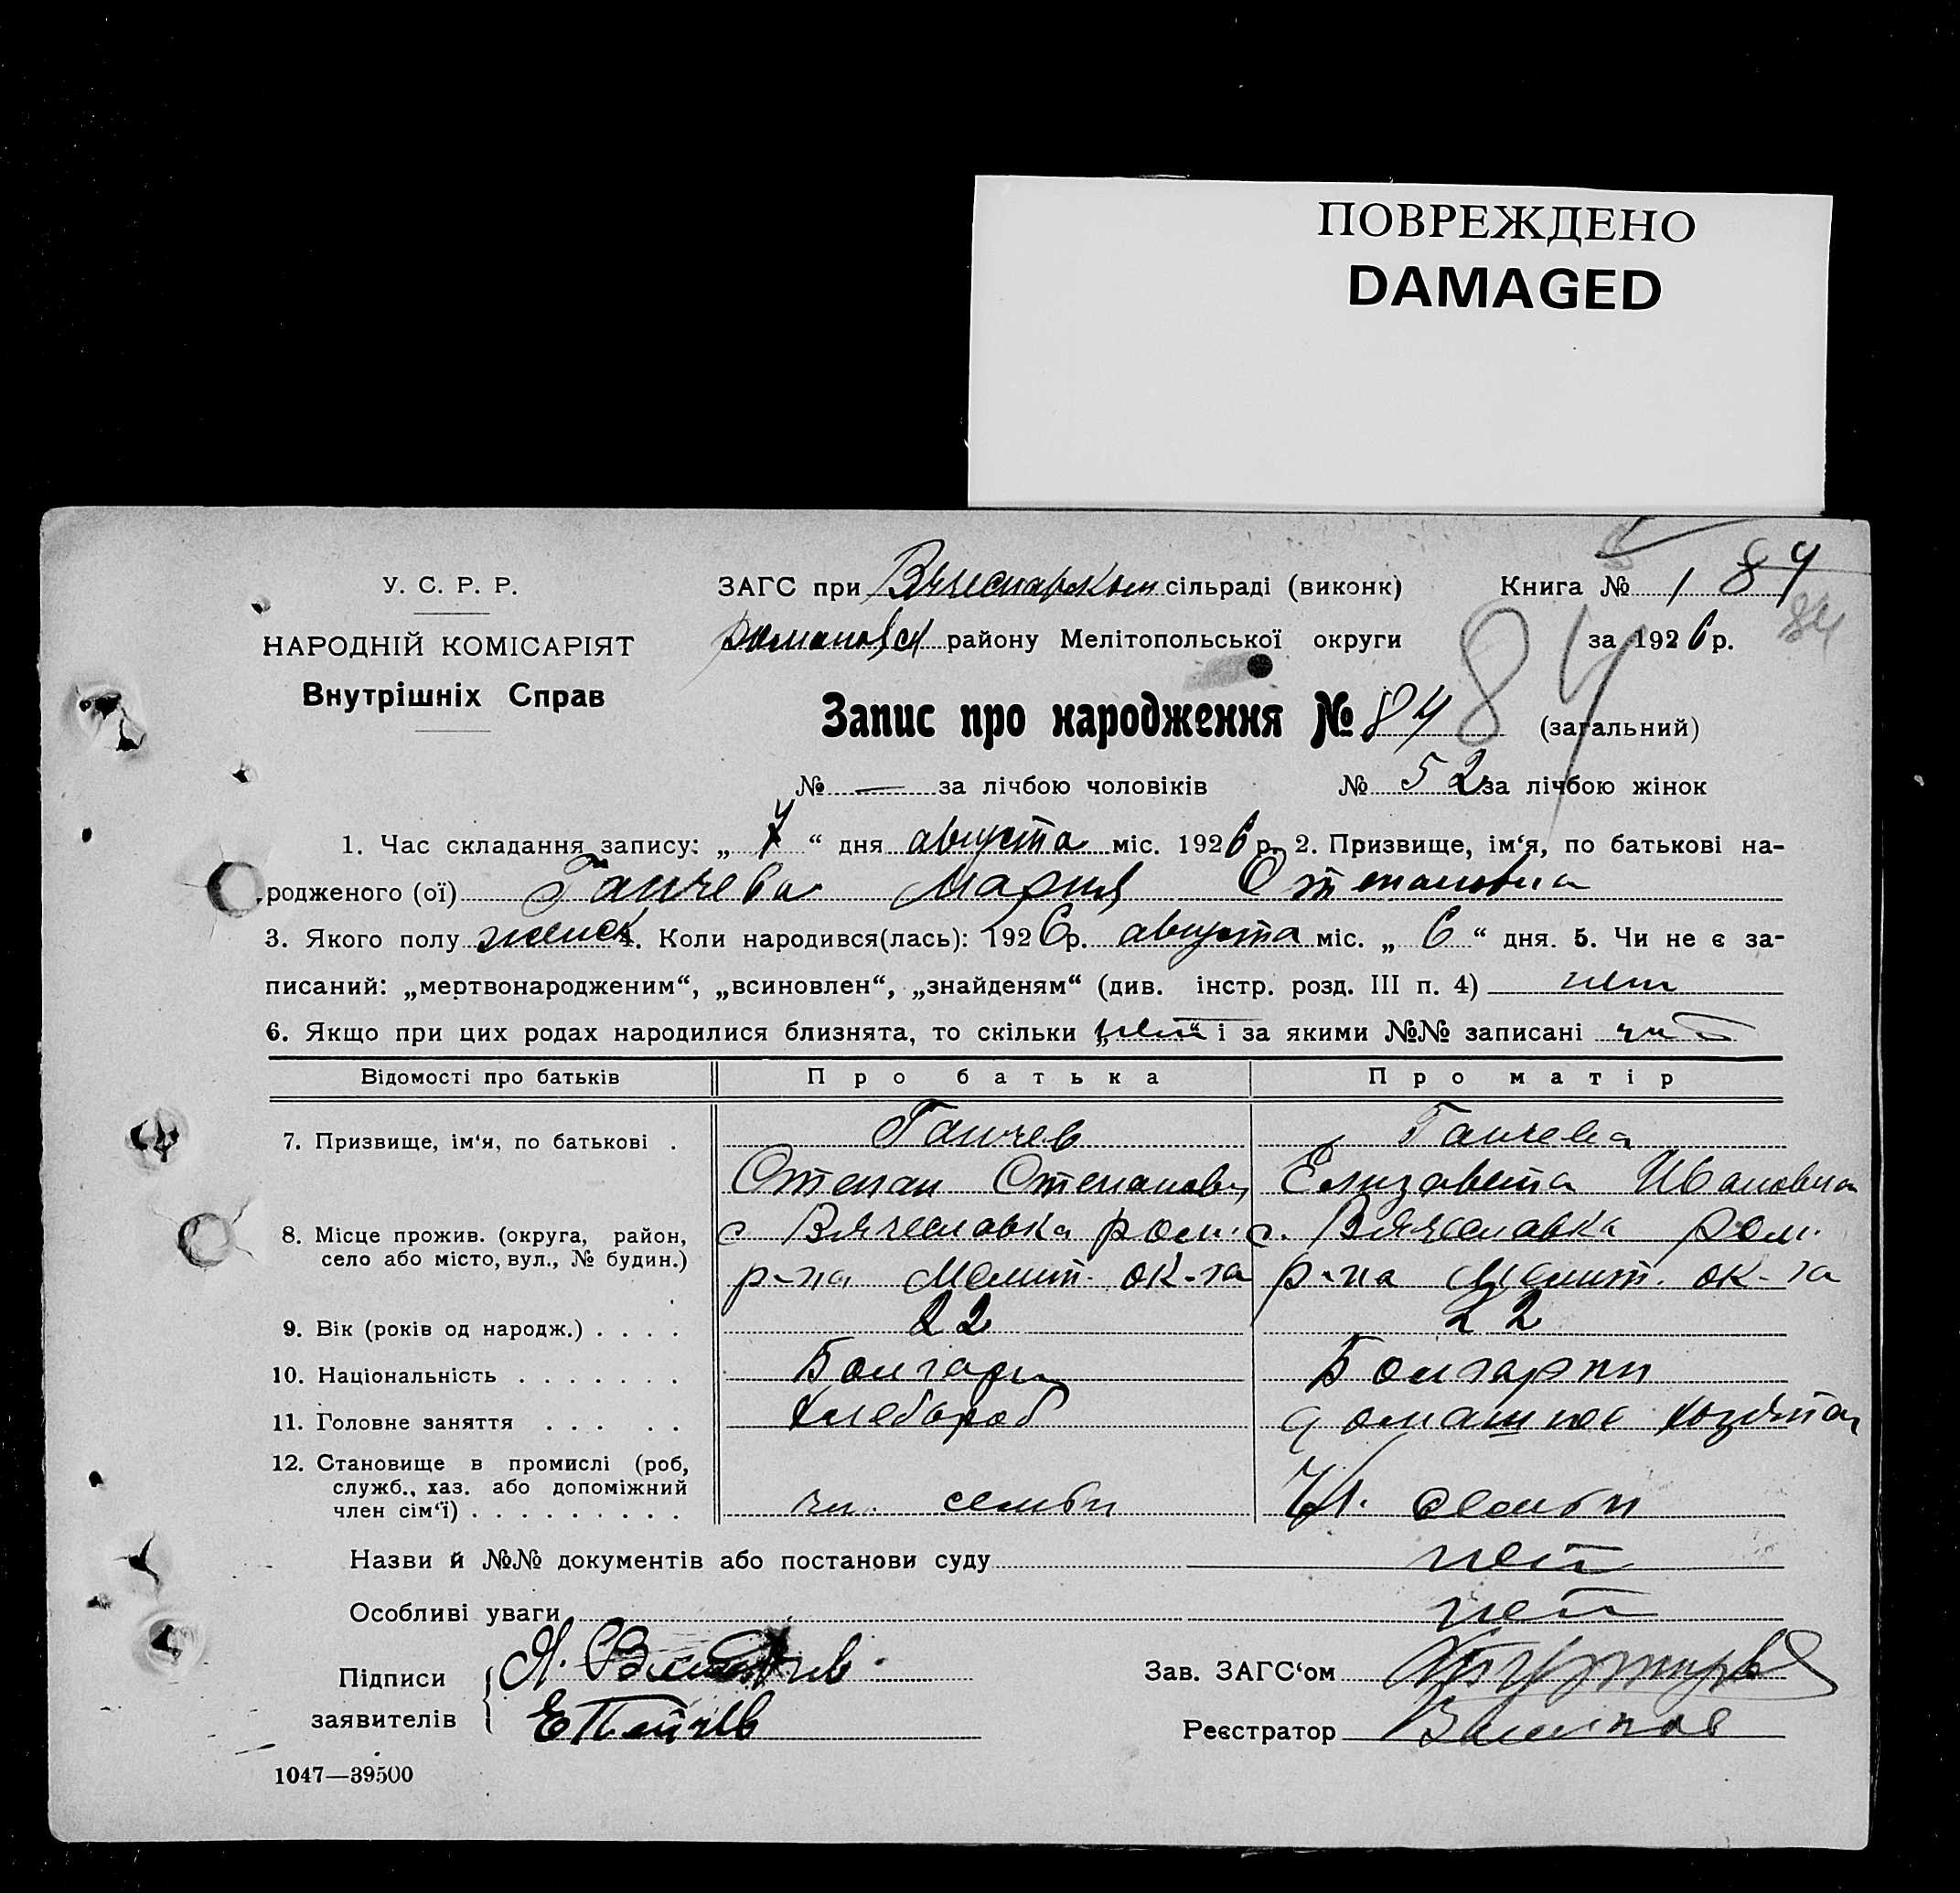 ПОВРЕЖДЕНО
DAMAGED
У. С. Р. Р.
НАРОДНІЙ КОМІСАРІЯТ
Внутрішніх Справ
ЗАГС при Вячеславском сільраді (виконк) Книга № 1 84
84
романовск району Мелітопольської округи за 1926 р.
Запис про народження № 84 84 (загальний)
№ — за лічбою чоловіків № 52 за лічбою жінок
1. Час складання запису: „ 7 “ дня августа міс. 1926 р. 2. Призвище, ім‘я, по батькові на-
родженого (ої) Ганчева Мария Степановна
3. Якого полу женск 4. Коли народився(лась): 1926 р. августа міс. „ 6 “ дня. 5. Чи не є за-
писаний: „мертвонародженим“, „всиновлен“, „знайденям“ (див. інстр. розд. III п. 4) нет
6. Якщо при цих родах народилися близнята, то скільки „нет“ і за якими №№ записані нет
Відомості про батьків Про батька Про матір
7. Призвище, ім‘я, по батькові . Ганчев Ганчева
Степан Степанович Елизавета Ивановна
8. Місце прожив. (округа, район, с. Вячеславка ром. с. Вячеславка ром.
село або місто, вул., № будин.) р-на Мелит. ок-га р-на Мелит. ок-га
9. Вік (років од народж.) . . . . 22 22
10. Національність . . . . . . . Болгарин Болгарки
11. Головне заняття . . . . . Хлебороб домашнее хозяйтво
12. Становище в промислі (роб,
служб., хаз. або допоміжний
член сім‘ї) . . . . . . . . . чл. семьи Чл. семьи
Назви й №№ документів або постанови суду нет
Особливі уваги нет
Підписи
заявителів
Зав. ЗАГС‘ом
Реєстратор
1047—39500